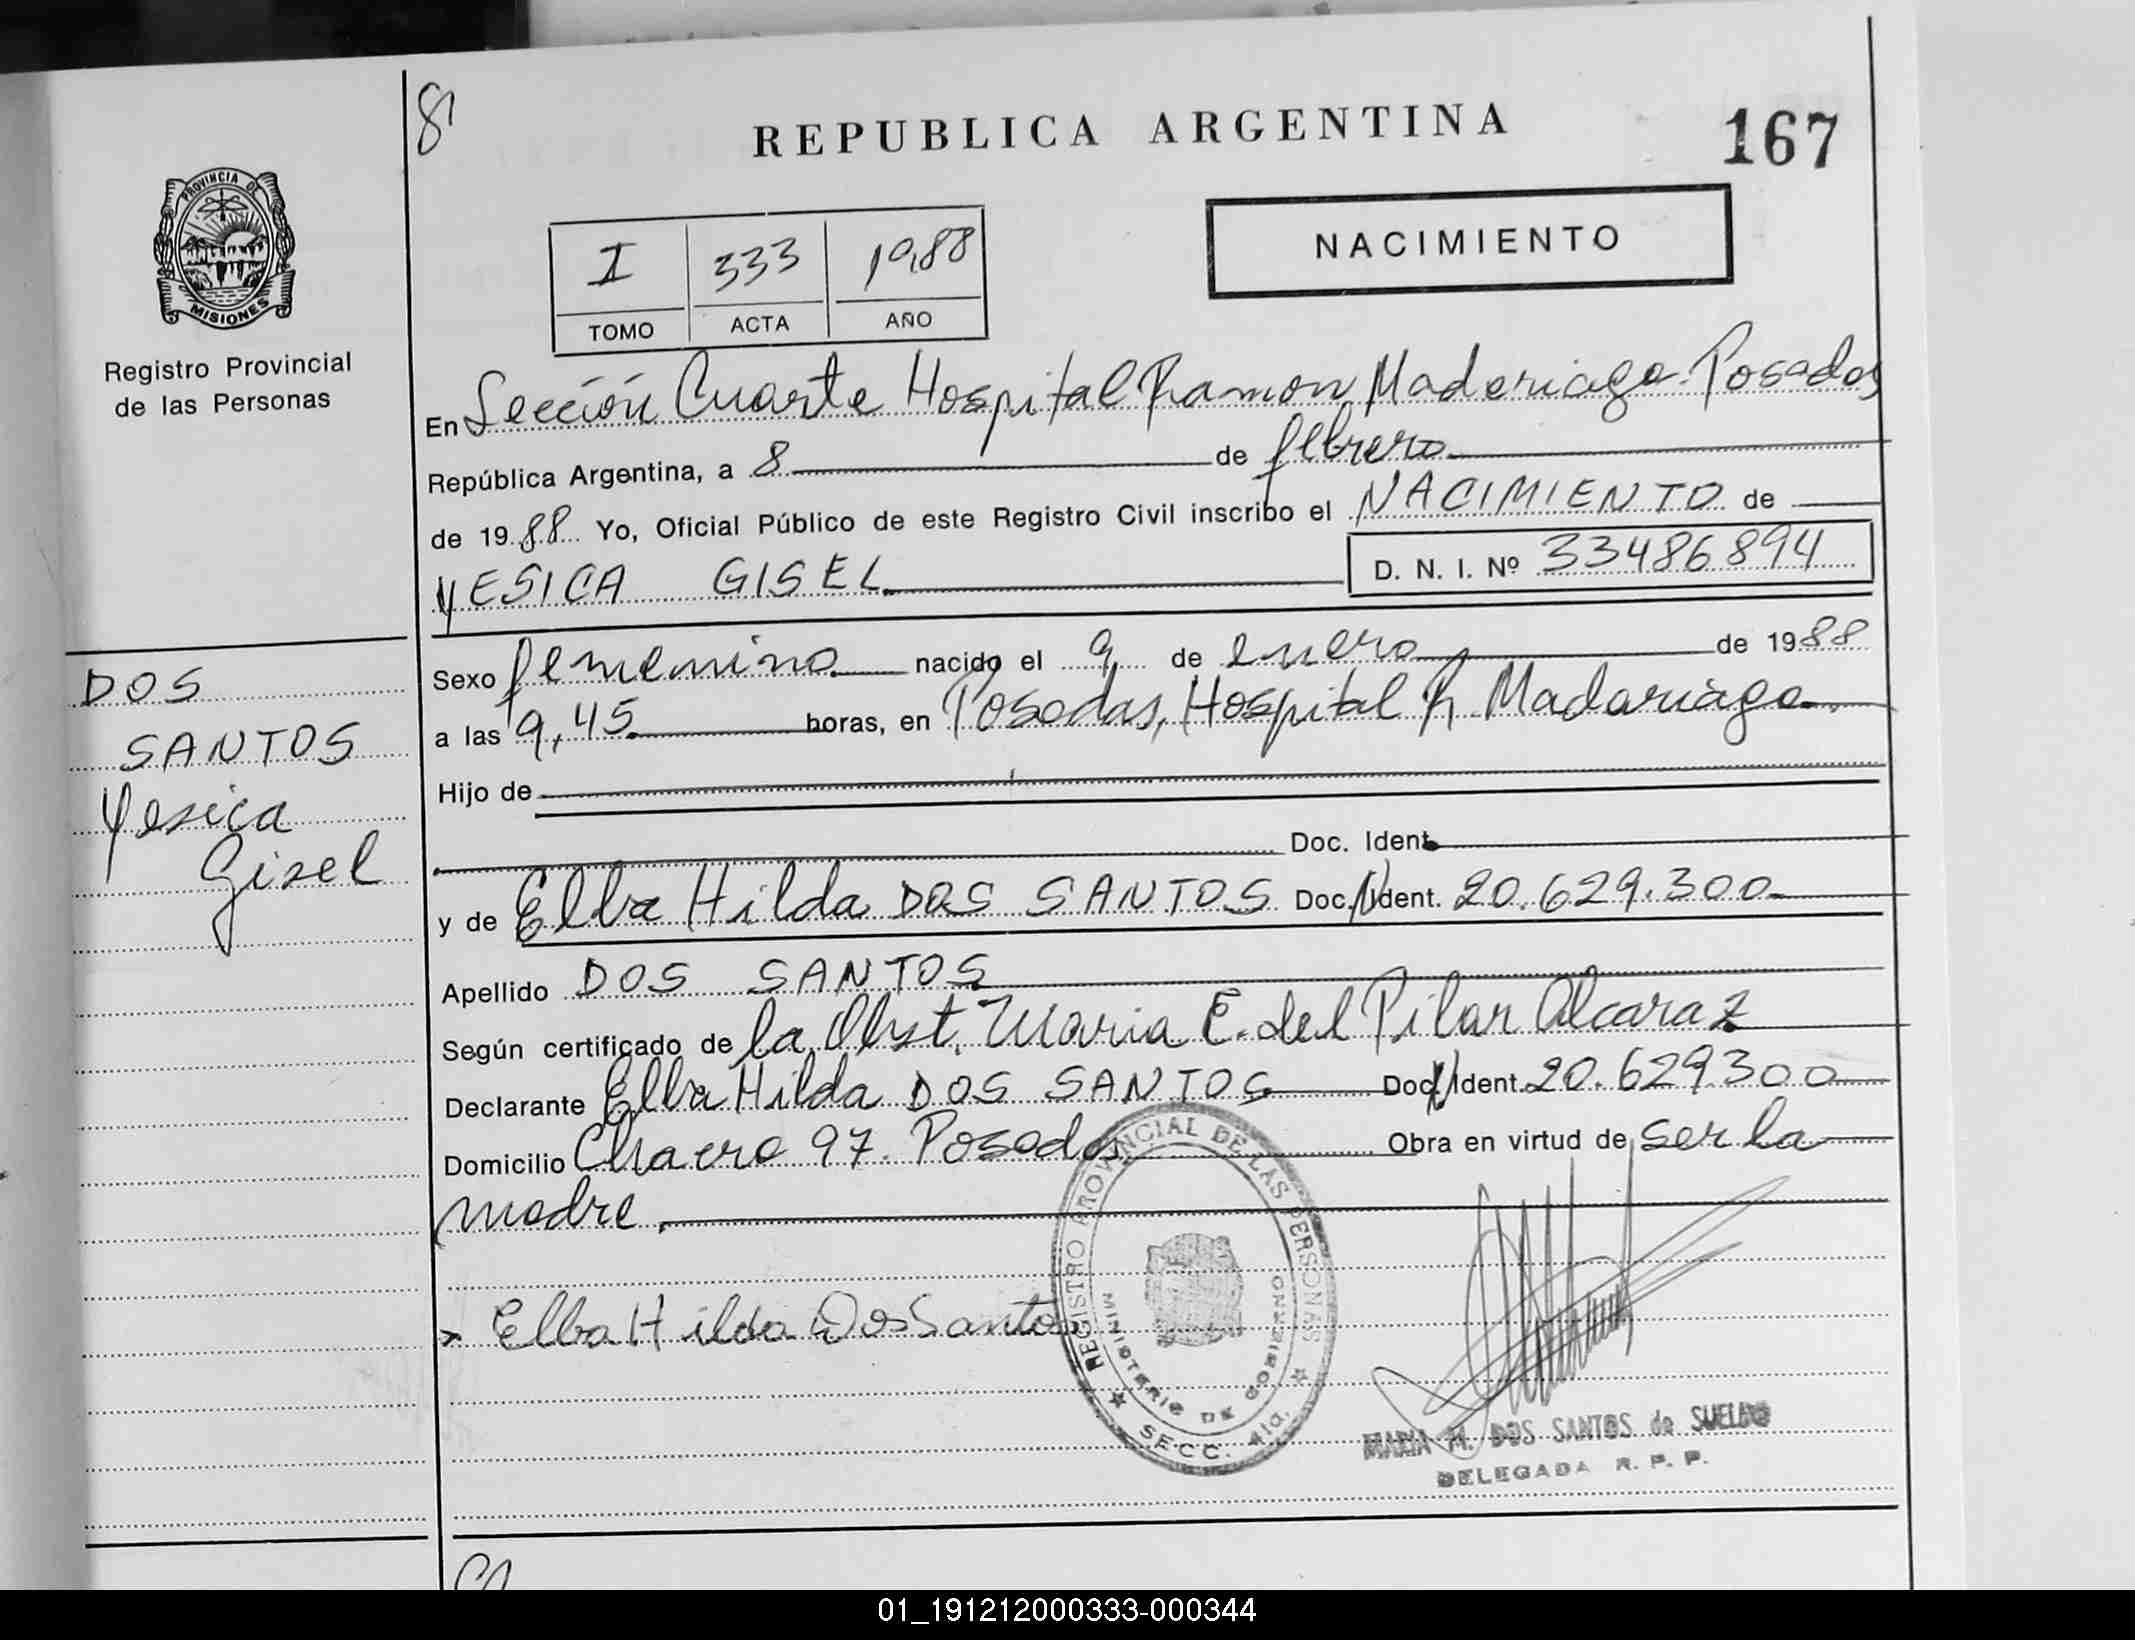 8
REPUBLICA ARGENTINA
167
PROVINCIA DE
MISIONES
Registro Provincial
de las Personas
NACIMIENTO
I 333 1988
TOMO ACTA AÑO
En Sección Cuarta Hospital Ramon Madariaga. Posadas
República Argentina, a 8 de febrero
de 1988 Yo, Oficial Público de este Registro Civil inscribo el NACIMIENTO de
YESICA GISEL
D. N. I. Nº 33486894
Sexo femenino nacido el 9 de enero de 1988
a las 9,45 horas, en Posadas, Hospital R. Madariaga
Hijo de
Doc. Ident.
y de Elba Hilda DOS SANTOS Doc. Ident. 20.629.300
Apellido DOS SANTOS
Según certificado de la Obst. Maria E. del Pilar Alcaraz
Declarante Elba Hilda DOS SANTOS Doc. Ident. 20.629300
Domicilio 97. Posadas Obra en virtud de ser la
madre.
DOS
SANTOS
Yesica
Gisel
Elba Hilda Dos Santos
REGISTRO PROVINCIAL DE LAS PERSONAS
MINISTERIO DE GOBIERNO
SECC. 4ta.
MARIA M. DOS SANTOS de SUELDO
DELEGADA R. P. P.
01_191212000333-000344